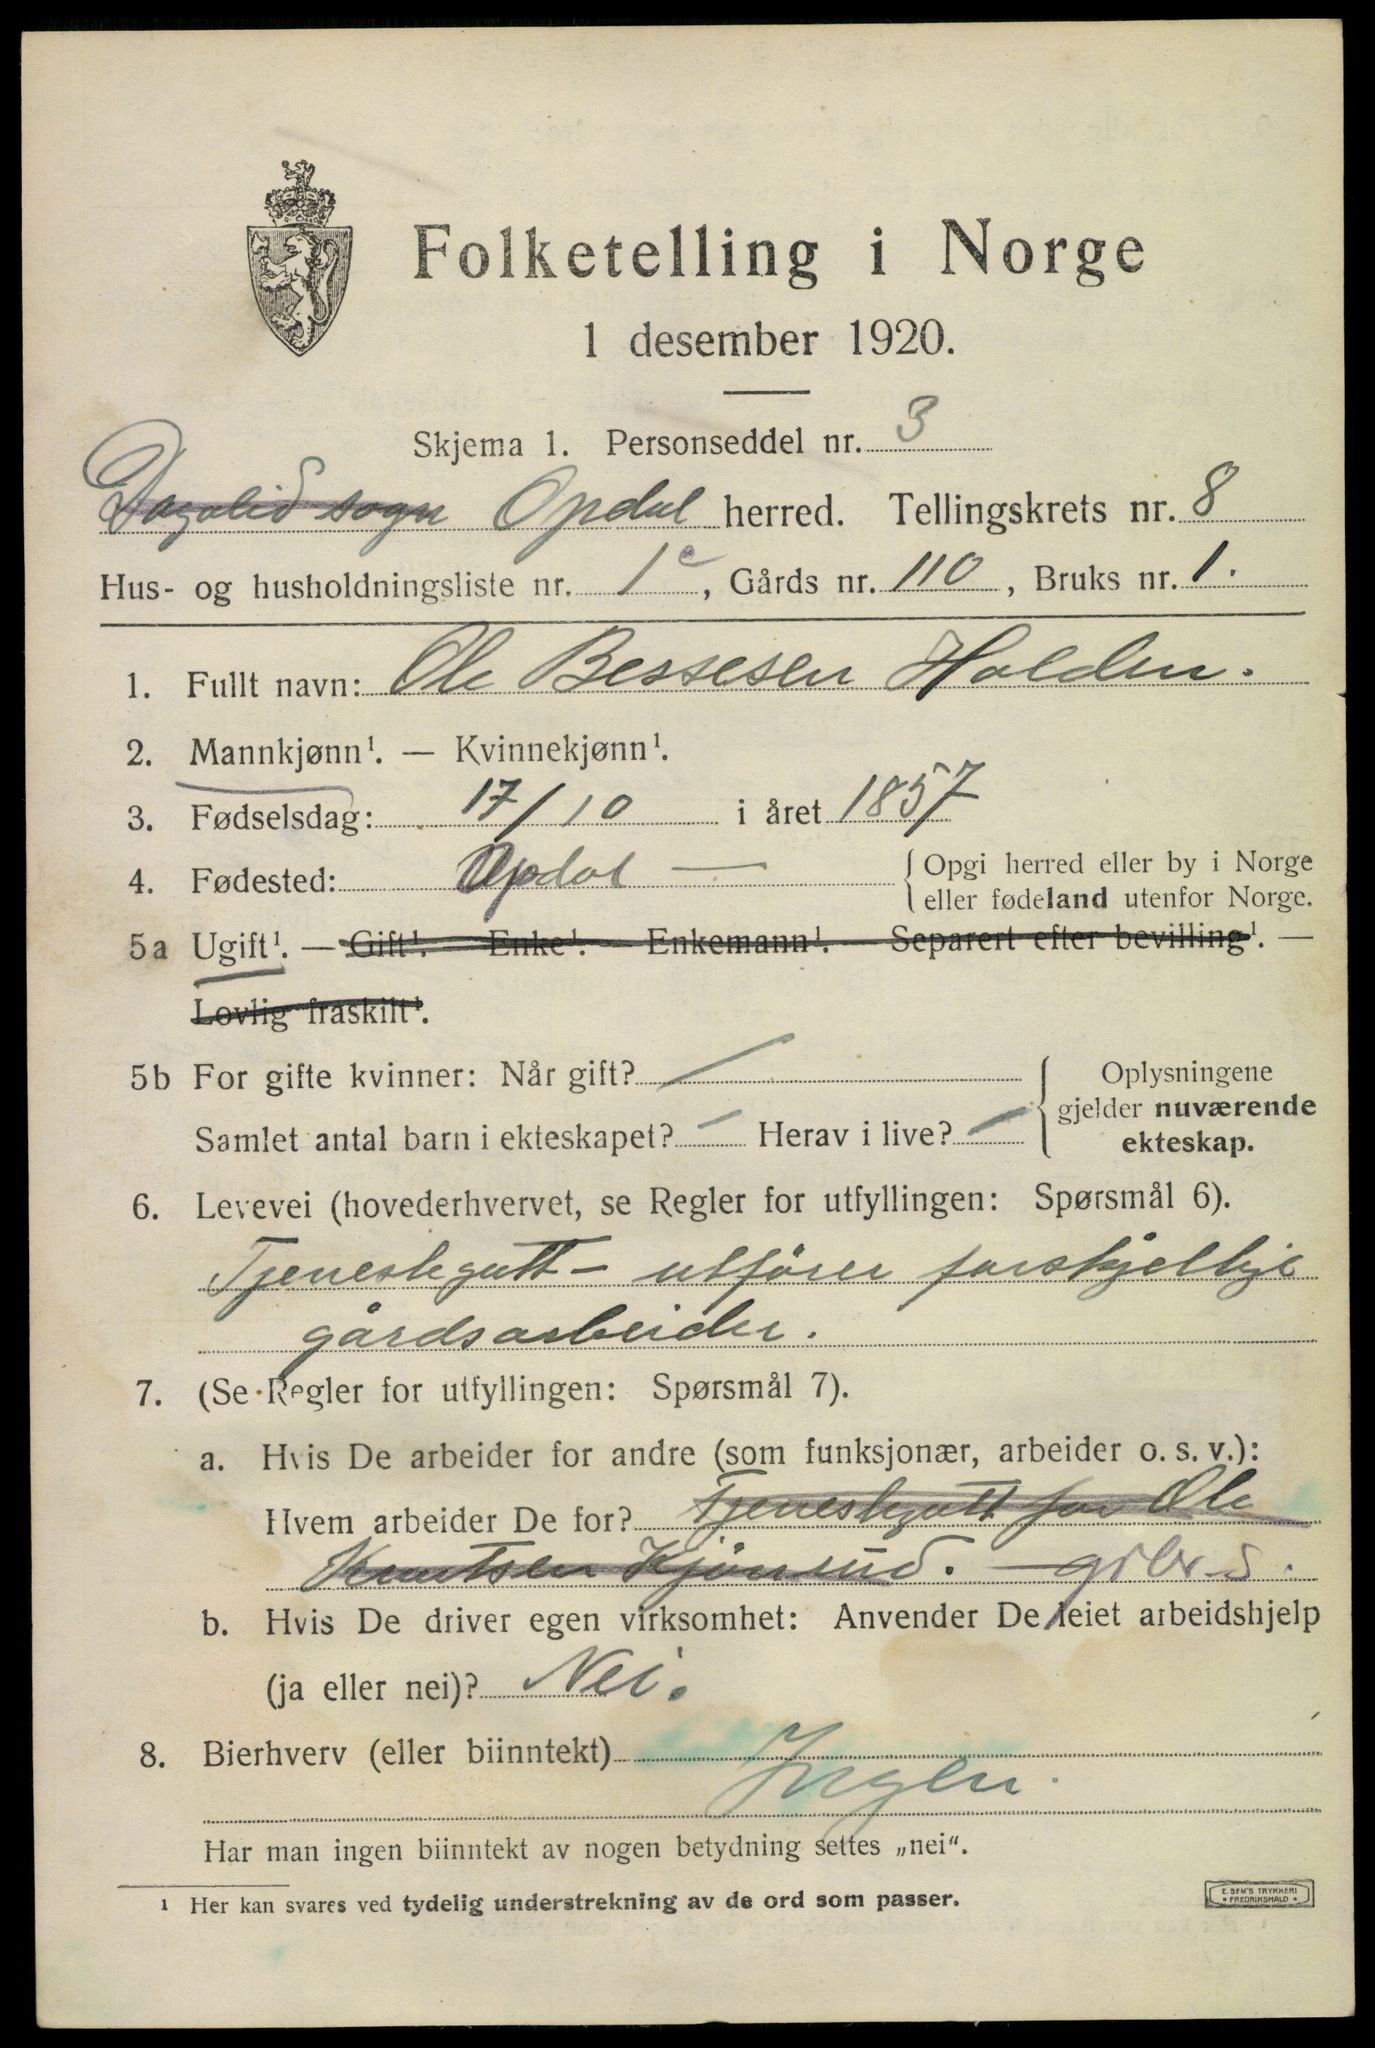 Folketelling i Norge
1 desember 1920.
Skjema 1. Personseddel nr. 3
Dagalid sogn Opdal herred. Tellingskrets nr. 8
Hus- og husholdningsliste nr. 1c, Gårds nr. 110, Bruks nr. 1.
1. Fullt navn: Ole Bessesen Holden.
2. Mannkjønn¹. — Kvinnekjønn¹.
3. Fødselsdag: 17/10 i året 1857
4. Fødested: Opdal — Opgi herred eller by i Norge
eller fødeland utenfor Norge.
5a Ugift¹. — Gift¹. — Enke¹. — Enkemann¹. — Separert efter bevilling¹. —
Lovlig fraskilt¹.
5b For gifte kvinner: Når gift? / Oplysningene
gjelder nuværende
Samlet antal barn i ekteskapet? / Herav i live? /
ekteskap.
6. Levevei (hovederhvervet, se Regler for utfyllingen: Spørsmål 6).
Tjenestegutt – utfører forskjellige
gårdsarbeider.
7. (Se Regler for utfyllingen: Spørsmål 7).
a. Hvis De arbeider for andre (som funksjonær, arbeider o. s. v.):
Hvem arbeider De for? Tjenestegutt for Ole
Knutsen Kjønsud.
b. Hvis De driver egen virksomhet: Anvender De leiet arbeidshjelp
(ja eller nei)? Nei.
8. Bierhverv (eller biinntekt) Ingen.
Har man ingen biinntekt av nogen betydning settes „nei“.
¹ Her kan svares ved tydelig understrekning av de ord som passer.
E. SEM'S TRYKKERI
FREDRIKSHALD